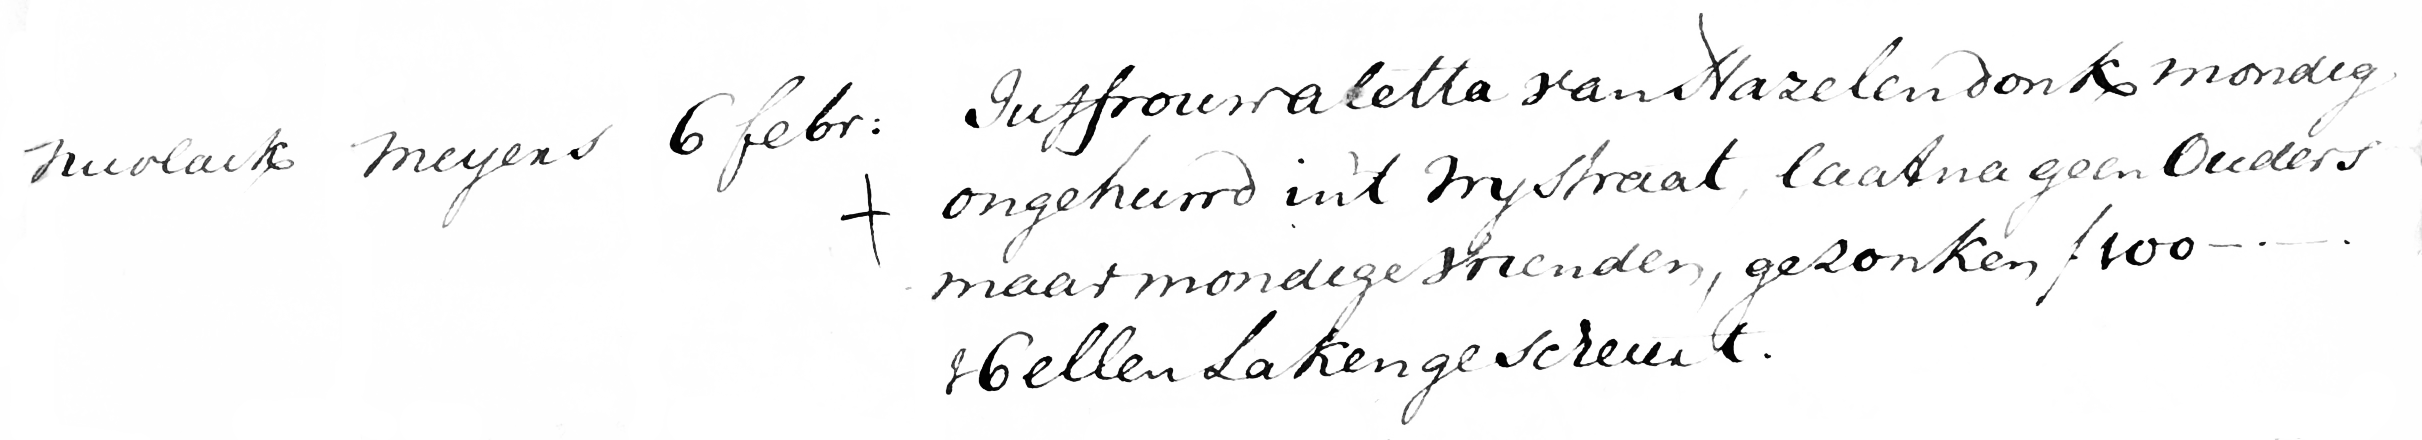 Nicolaik Meyers 6 febr: Juffrouw aletta van Hazelendonk mondig
+ ongehuwd in't Vrystraat, laat na geen Ouders
maar mondige Vrienden, gezonken f 100 — . — .
16 ellen Laken gescheurt.